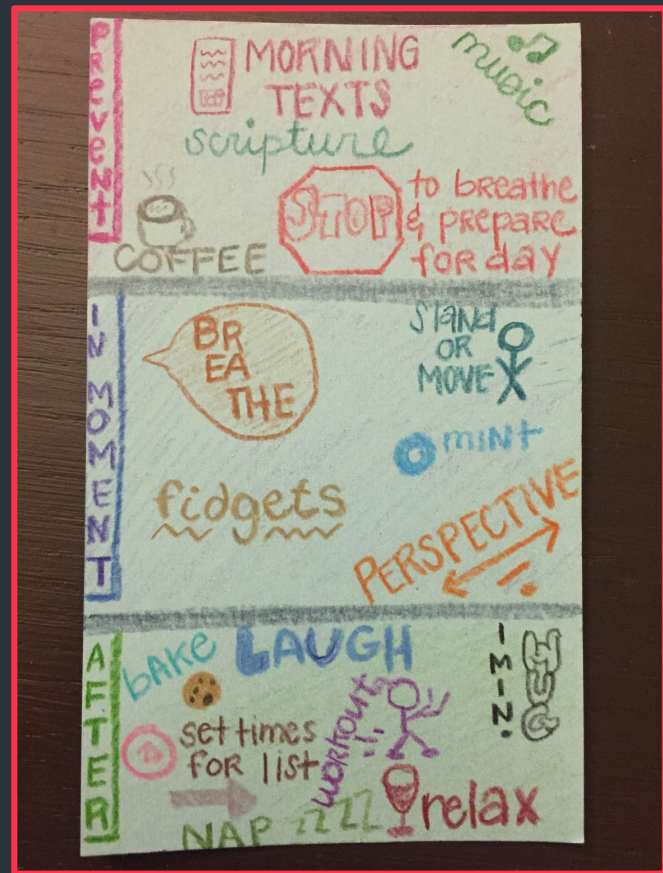 PREVENT
MORNING
TEXTS
music
scripture
COFFEE
STOP
to breathe
& prepare
for day
IN MOMENT
BR
EA
THE
STAND
OR
MOVE
mint
fidgets
PERSPECTIVE
AFTER
bake
LAUGH
1 MIN.
HUG
set times
for list
WORKOUT
NAP ZZZZ
relax